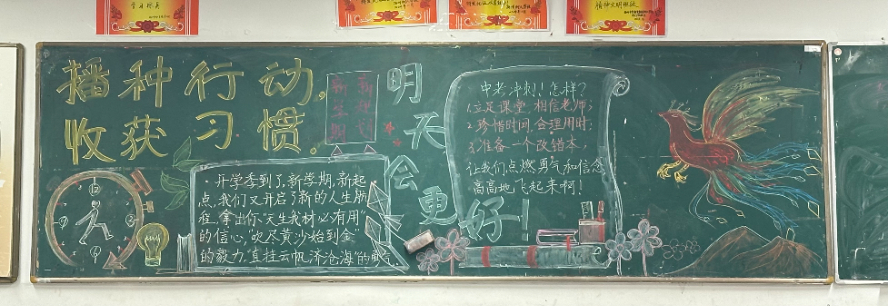 播种行动，
收获习惯。
新学期
新计划
明天会更好！
·开学季到了，新学期，新起
点，我们又开启了新的人生旅
程，拿出你"天生我材必有用"
的信心，"吹尽黄沙始到金"
的毅力，"直挂云帆济沧海"的勇气
中考冲刺！怎样？
1.立足课堂，相信老师；
2.珍惜时间，合理用时；
3.准备一个改错本，
让我们点燃勇气和信念
高高地飞起来啊！